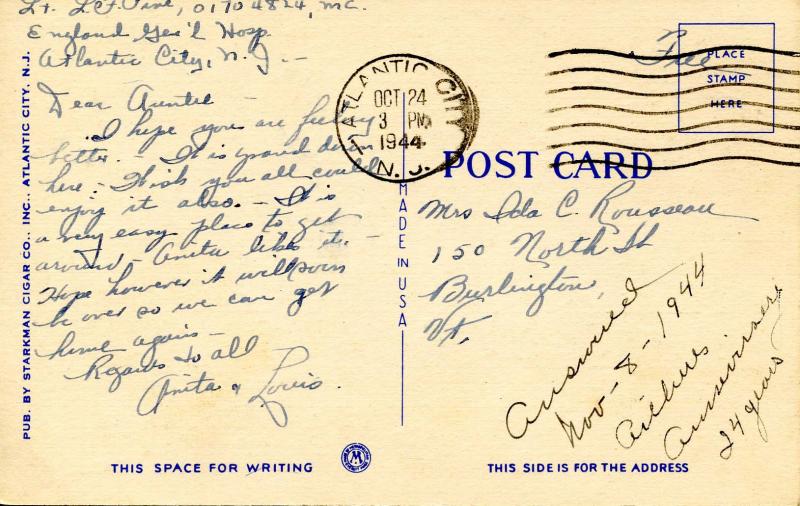 Lt. L.F. Pine, 01704824, MC.
England Gen'l Hosp.
Atlantic City, N. J. -
Dear Auntie -
I hope you are feeling
better - It is grand down
here - Wish you all could
enjoy it also. - It is
a very easy place to get
around - Anita likes it. -
Hope however it will soon
be over so we can get
home again -
Regards to all
Anita & Louis.
PUB. BY STARKMAN CIGAR CO., INC., ATLANTIC CITY, N.J.
THIS SPACE FOR WRITING
MADE IN USA
ATLANTIC CITY
OCT 24
3 PM
1944
N. J.
Free
PLACE
STAMP
HERE
POST CARD
Mrs Ida C. Rousseau
150 North St
Burlington,
Vt.
Answered
Nov-8-1944
Anniversary
24 years
THIS SIDE IS FOR THE ADDRESS